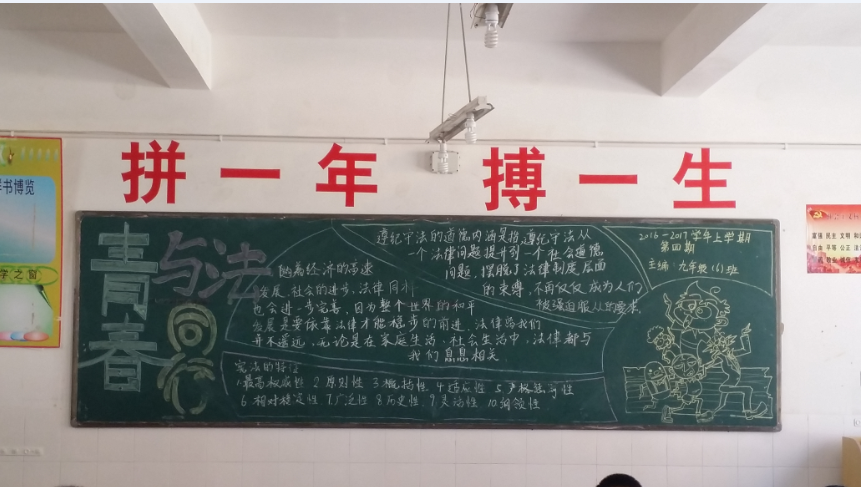 拼一年 搏一生
书博览
字之窗
富强 民主 文明
自由 平等 公正
青春
与法
同行
遵纪守法的道德内涵是指遵纪守法从
一个法律问题提升到一个社会道德
问题，摆脱了法律制度层面
的束缚，不再仅仅成为人们
被强迫服从的要求。
随着经济的高速
发展，社会的进步，法律同样
也会进一步完善，因为整个世界的和平
发展是要依靠法律才能稳步的前进，法律给我们
并不遥远，无论是在家庭生活，社会生活中，法律都与
我们息息相关
宪法的特征
1.最高权威性 2.原则性 3.概括性 4.适应性
6.相对稳定性 7.广泛性 8.历史性 9.灵活性 10.纲领性
2016-2017学年上学期
第四期
主编：九年级(6)班